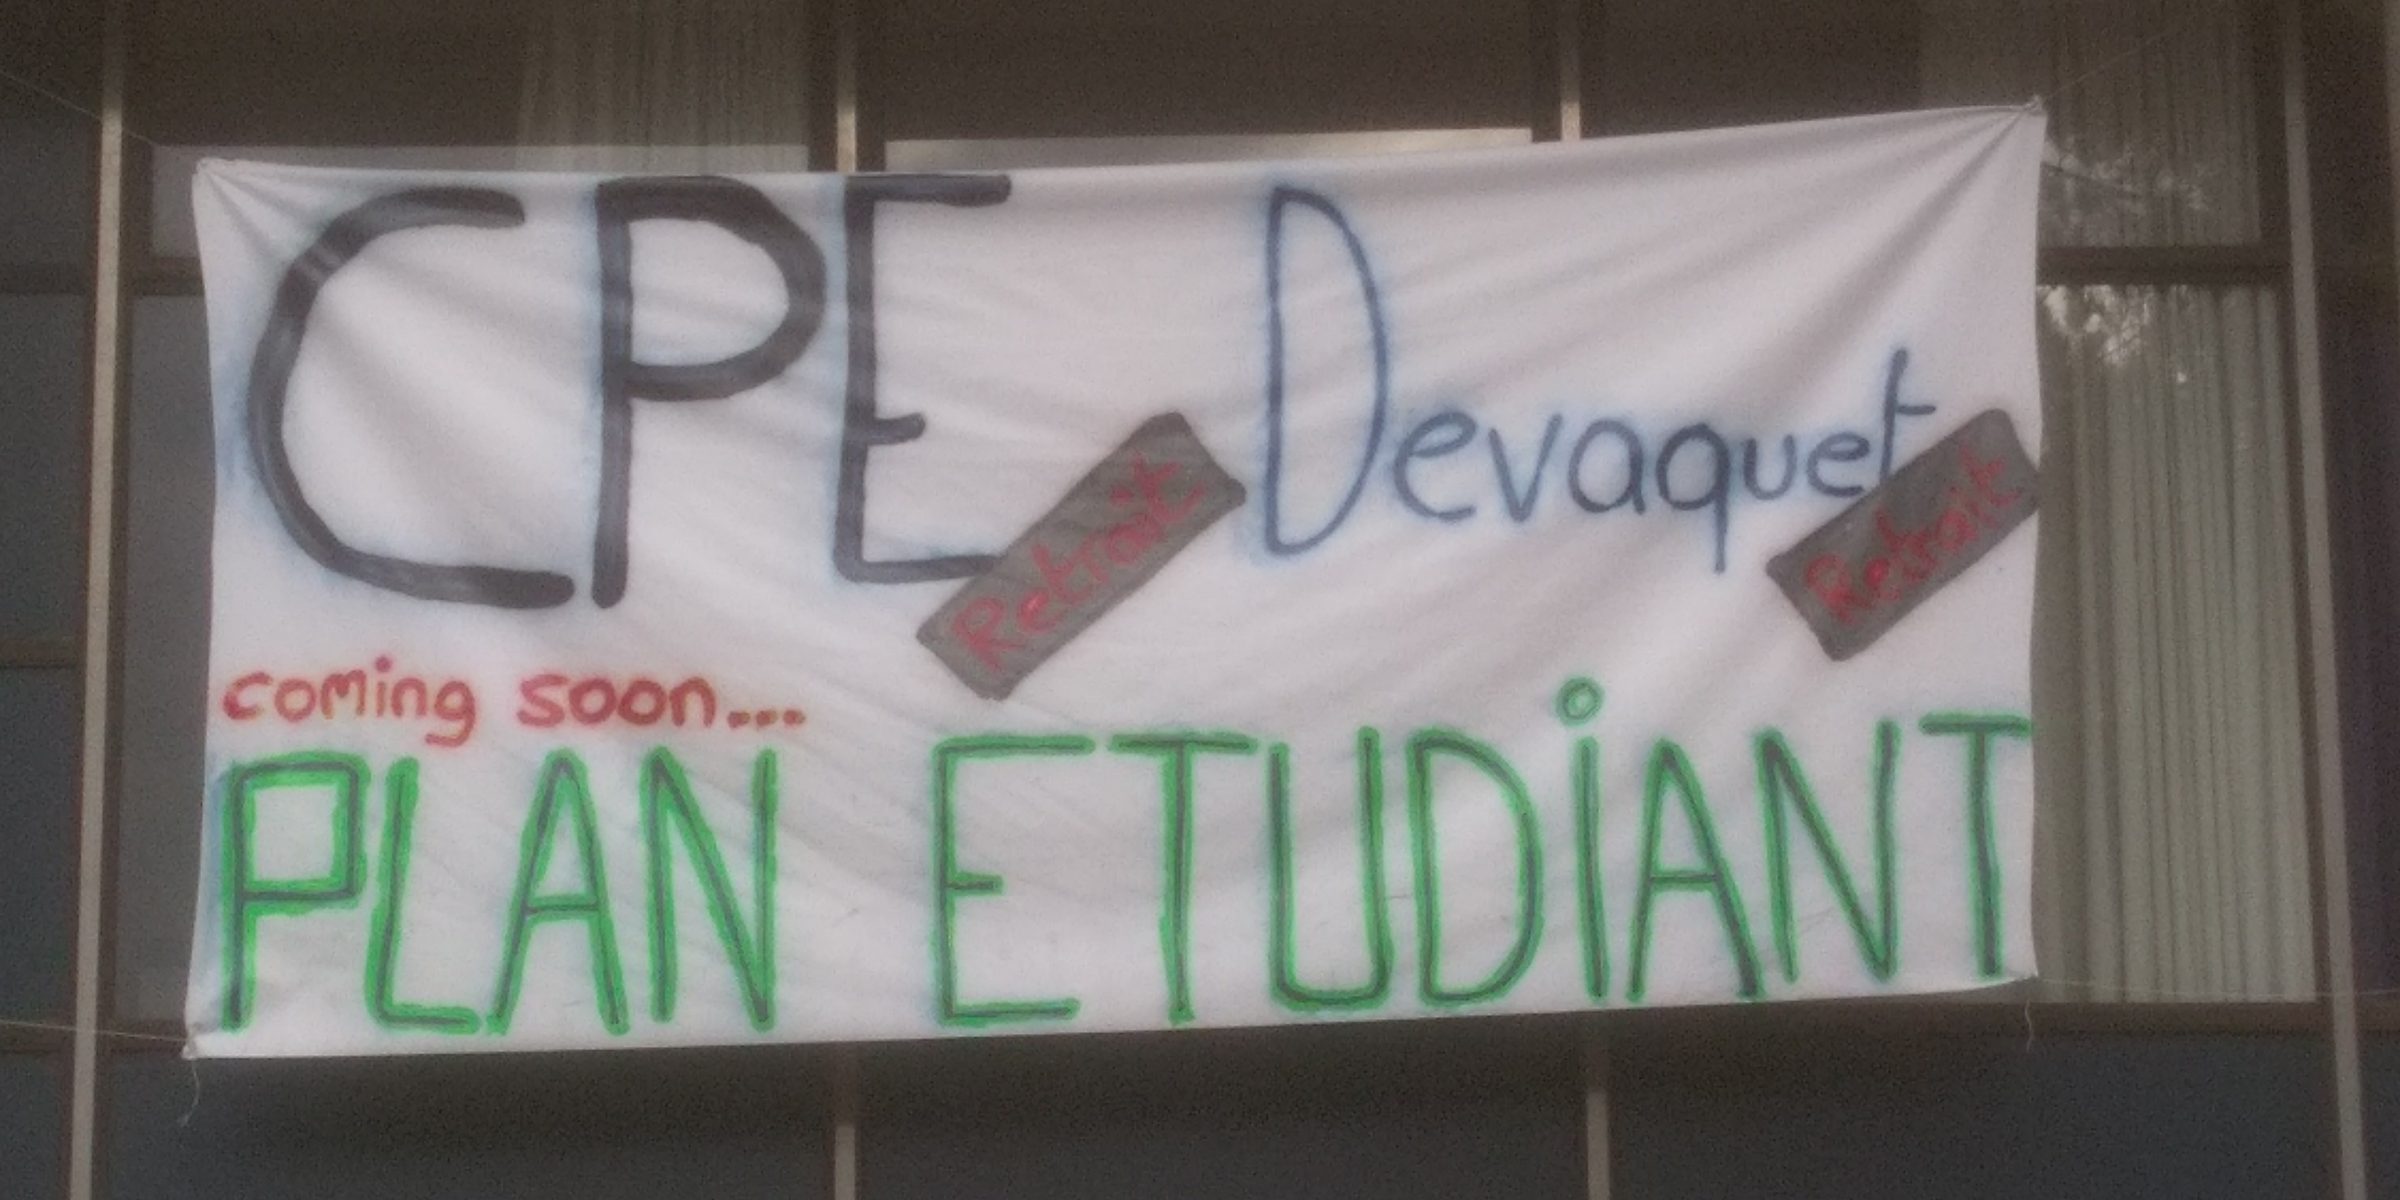 CPE Devaquet
Retrait Retrait
coming soon...
PLAN ETUDiANT